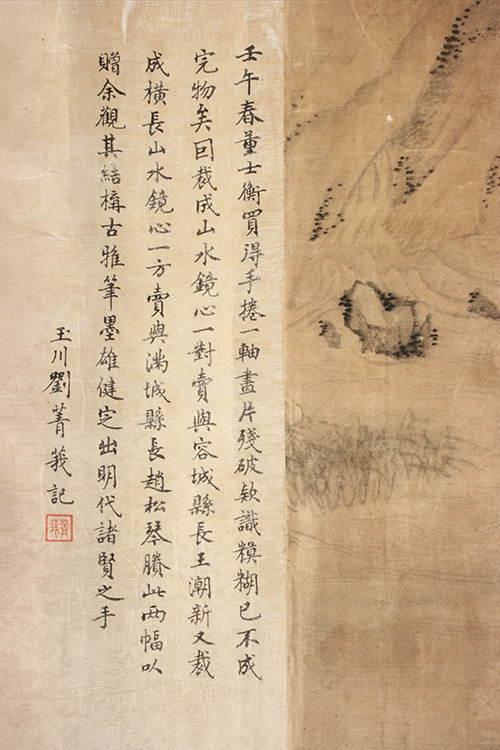 壬午春董士衡買得手捲一軸畫片殘破欵識糢糊已不成
完物矣囙裁成山水鏡心一對賣與容城縣長王潮新又裁
成橫長山水鏡心一方賣與滿城縣長趙松琴賸此两幅以
贈余觀其結構古雅筆墨雄健定出明代諸賢之手
玉川劉菁莪記